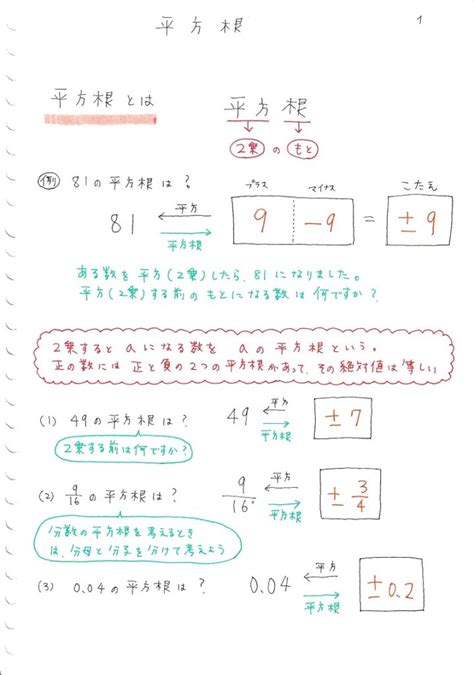 平方根
1
平方根とは
平方根
2乗 の もと
例 81の平方根は?
プラス マイナス こたえ
81 平方 平方根 9 -9 = ±9
ある数を平方(2乗)したら、81になりました。
平方(2乗)する前のもとになる数は何ですか?
2乗すると aになる数を aの平方根という。
正の数には 正と負の2つの平方根があって、その絶対値は等しい
(1) 49の平方根は? 49 平方 平方根 ±7
2乗する前は何ですか?
(2) 9/16の平方根は? 9/16 平方 平方根 ±3/4
分数の平方根を考えるとき
は、分母と分子を分けて考えよう
(3) 0.04の平方根は? 0.04 平方 平方根 ±0.2